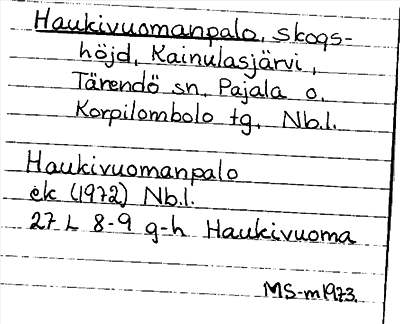 Haukivuomanpalo, skogs-
höjd, Kainulasjärvi,
Tärendö sn, Pajala o.
Korpilombolo tg, Nb.l.
Haukivuomanpalo
ek (1972) Nb.l.
27 L 8-9 g-h Haukivuoma
MS-m1973.